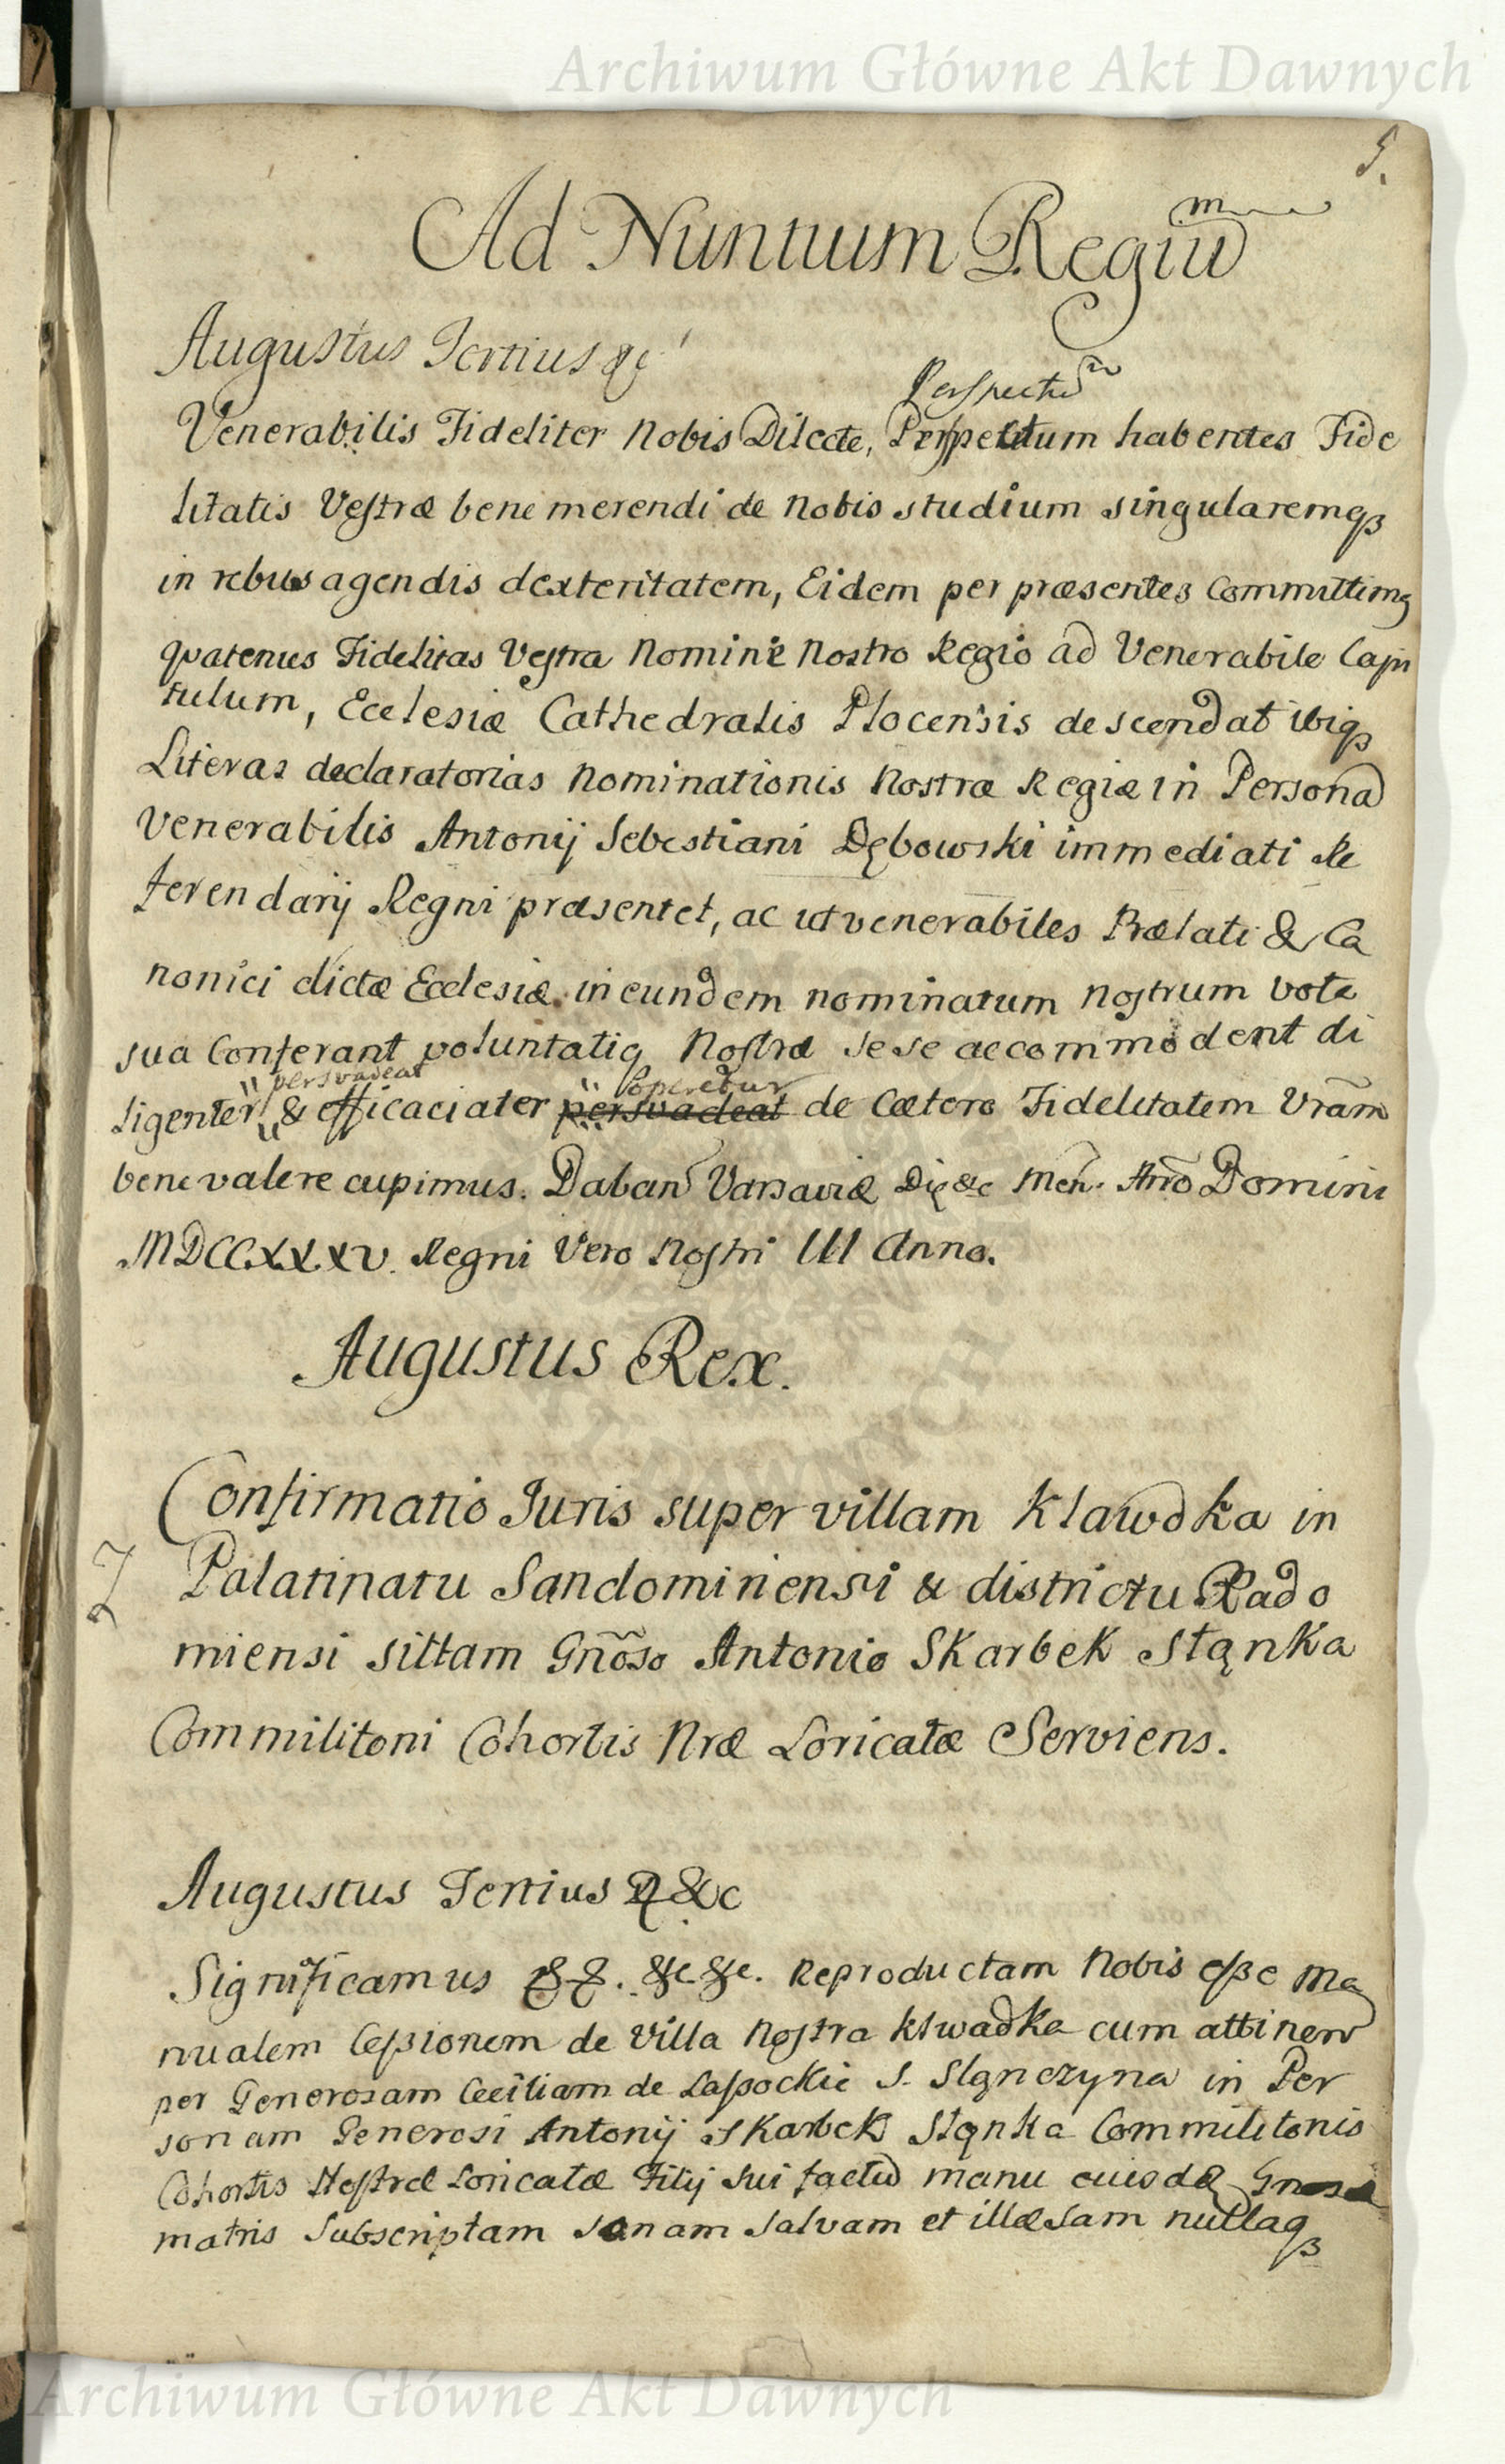 Archiwum Główne Akt Dawnych
5.
Ad Nuntium Regiū
m
Augustus Tertius &c
Perspectū
Venerabilis Fideliter Nobis Dilecte, Perspectum habentes Fide
litatis Vestræ bene merendi de Nobis studium singularemqꝫ
in rebus agendis dexteritatem, Eidem per præsentes Committimꝯ
quatenus Fidelitas Vestra Nomine Nostro Regio ad Venerabile Capi
tulum, Ecclesiæ Cathedralis Plocensis descendat ibiqꝫ
Literas declaratorias Nominationis Nostræ Regiæ in Persona
Venerabilis Antonij Sebestiani Dębowski immediati Re
ferendarij Regni præsentet, ac ut venerabiles Prælati & Ca
nonici dictæ Ecclesiæ in eundem nominatum nostrum vota
sua Conferant voluntatiq Nostræ sese accommodent di
persvadeat operetur
ligenter & efficaciater persvadeat de Cætero Fidelitatem Vrãm
bene valere cupimus. Daban Varsaviæ Die &c Men. Ano Domini
MDCCXXXV. Regni Vero Nostri III Anno.
Augustus Rex.
Confirmatio Juris super villam Klawdka in
Palatinatu Sandomiriensi & districtu Rado
miensi sittam Gnõso Antonio Skarbek Stąnka
Commilitoni Cohortis Nræ Loricatæ Serviens.
Augustus Tertius &c
Significamus &c. &c. Reproductam Nobis eße Ma
nualem Ceßionem de Villa Nostra Klwadka cum attinen
per Generosam Ceciliam de Laßockie S. Stąnczyna in Per
sonam Generosi Antonij Skarbek Stąnka Commilitonis
Cohortis Nostræ Loricatæ Filij sui factū manu eiusdē Gnosæ
matris Subscriptam sanam salvam et illæsam nullaqꝫ
Archiwum Główne Akt Dawnych